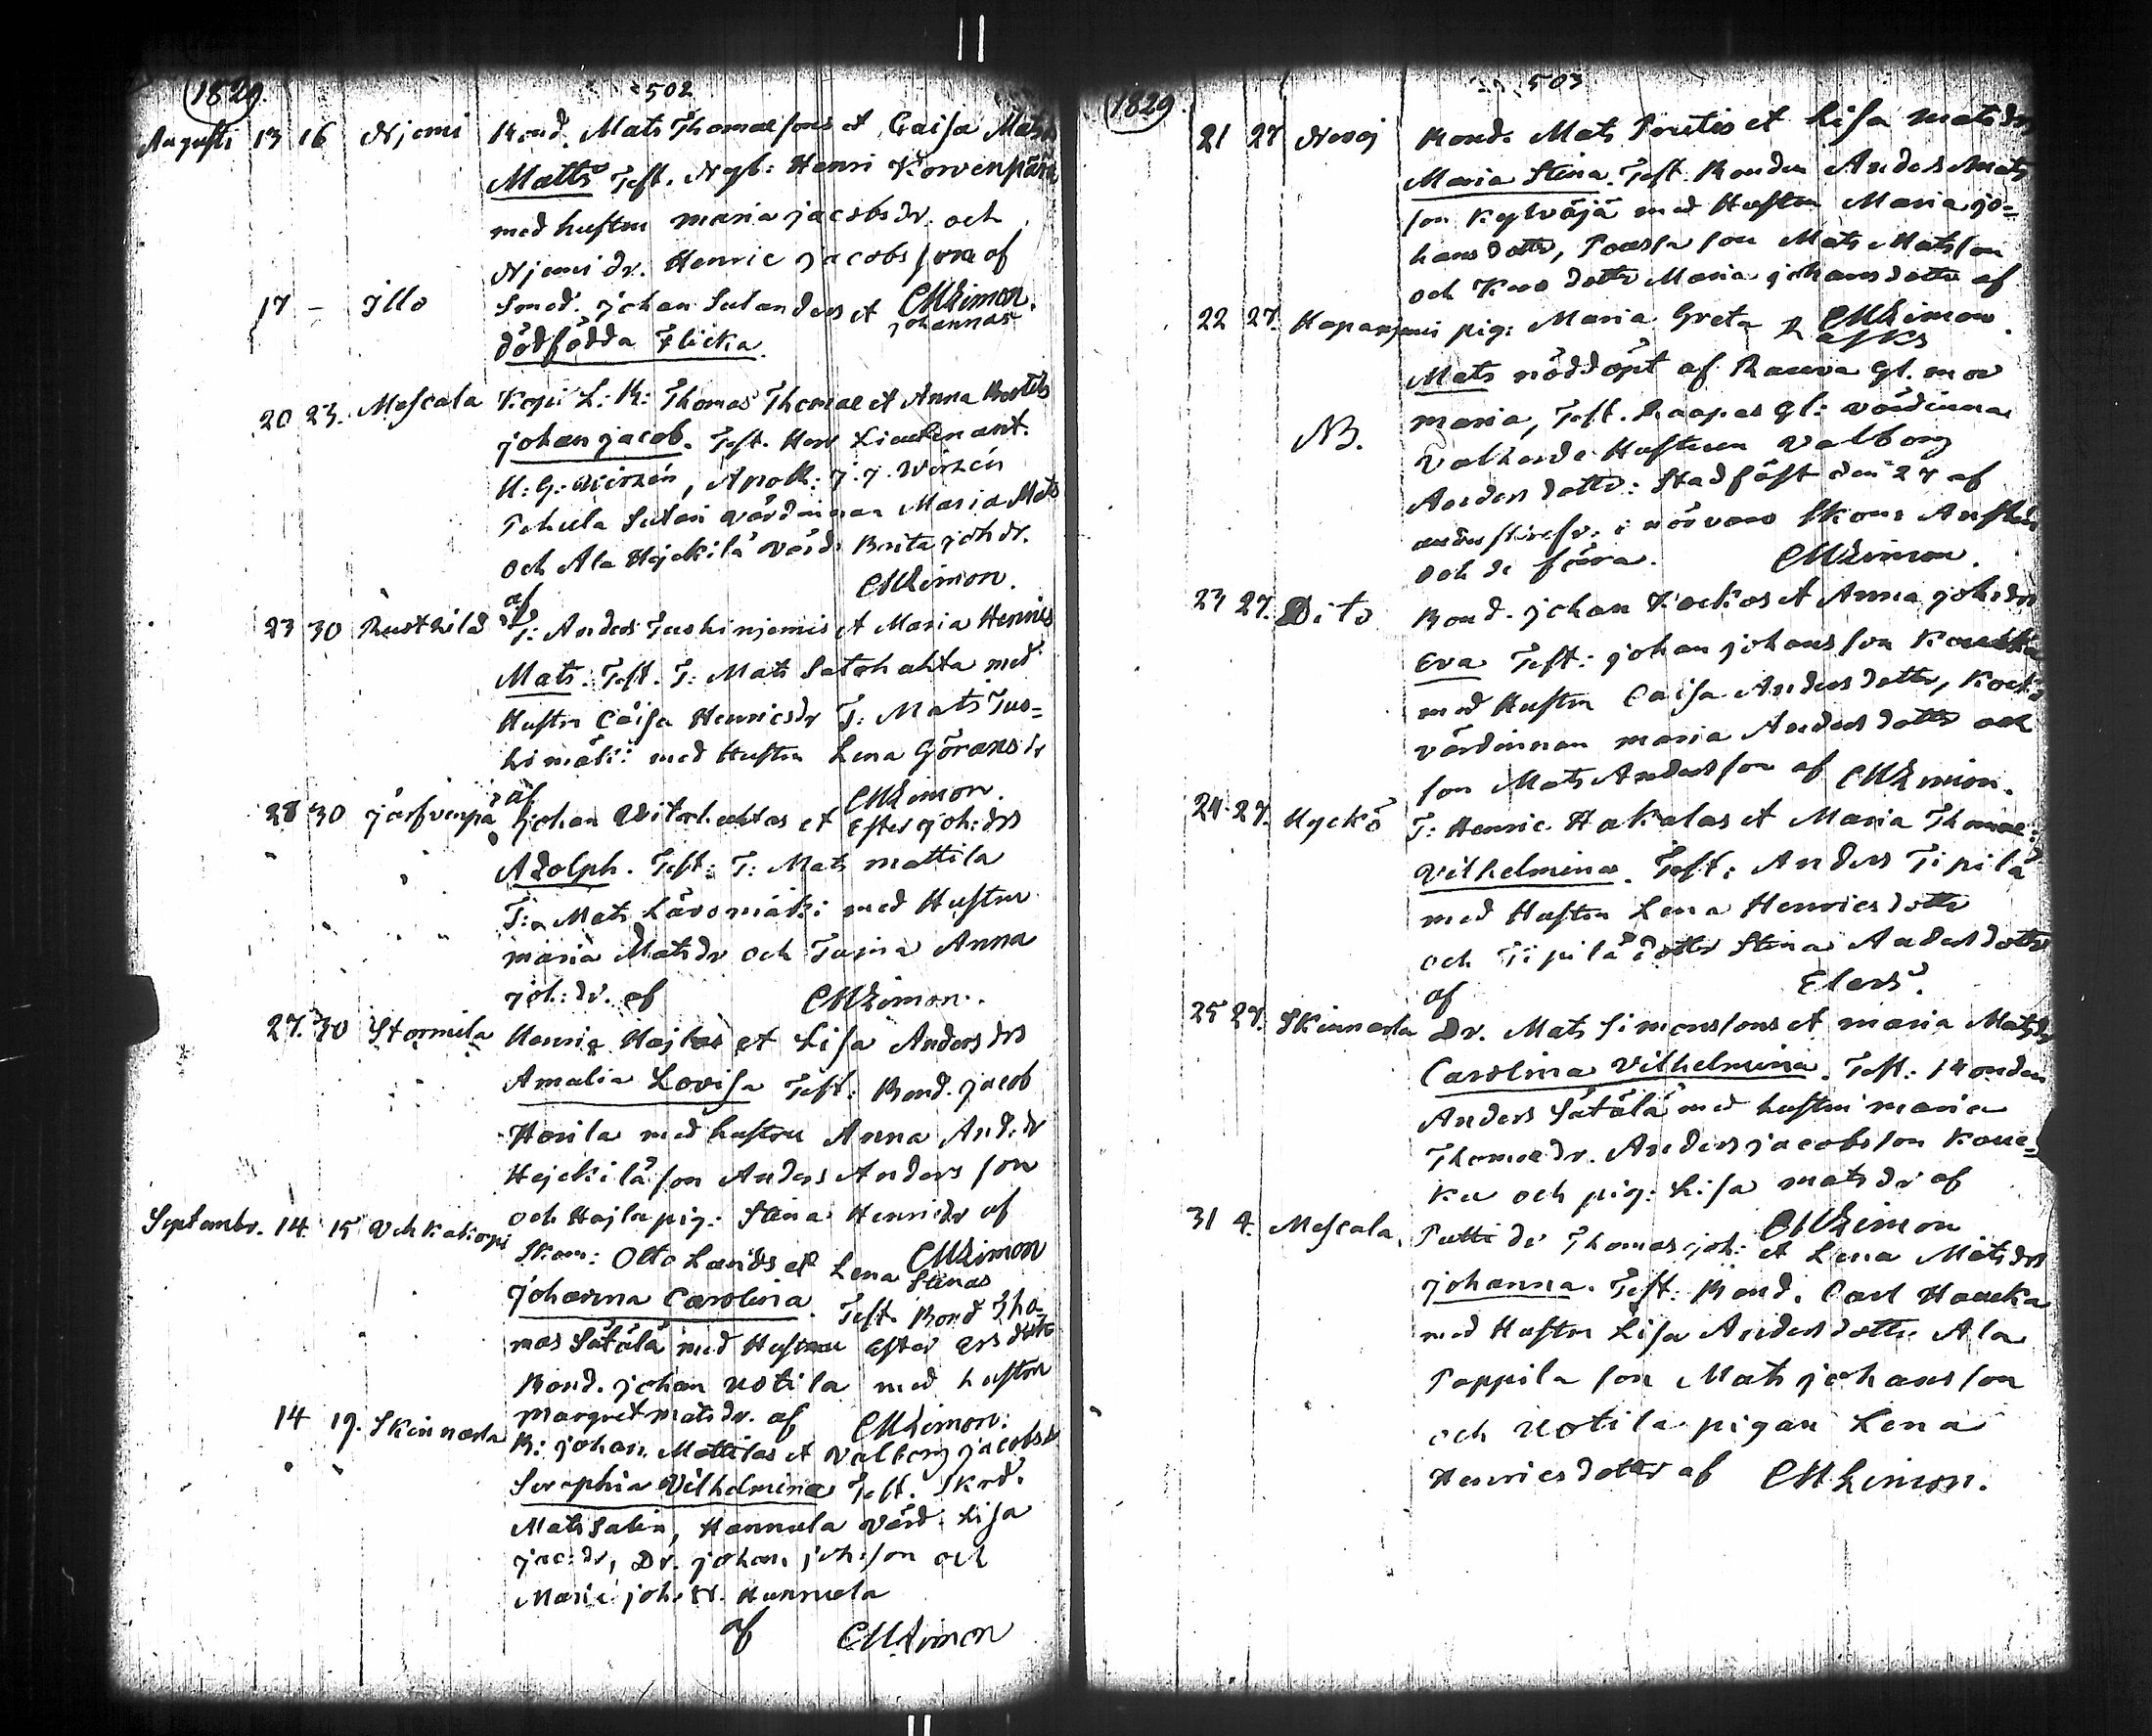 1829.
502
Augusti 13 16 Njemi Bond. Mats Thomaesons et Caisa Mats
Matts Test. Ngb: Henri Korvenpää
med hustru maria jacobsdr. och
Njemi dr. Henric jacobsson af
CMLimon.
17 - Jllo Smed. johan Sulanders et johannas
dödfödda Flicka.
20 23. Mascala L: B: Thomas Thomae et Anna Bertils
johan jacob. Test. Herr Lieutenant.
U: G: Wirzén, Apoth: J. J. Wirzén
Pehula Sutari värdinnan Maria Mats
och Ala Hejckilä värd. Brita joh dr.
af CMLimon.
23 30 Rustkild T: Anders Tuohinjemis et Maria Henrics
Mats. Test. T: Mats Satohahta med
Hustru Caisa Henricsdr T: Mats Tuo=
himäki med Hustru Lena Göransdr
af CMLimon.
28 30 järfvenpä johan Vitahuhtas et Ester joh:drs
Adolph. Test: T: Mats mattila
T: Mats Lävomäki med Hustru
maria Matsdr och Anna
joh: dr. af CMLimon.
27. 30 Stormila Henric Hajlas et Lisa Andersdrs
Amalia Lovisa Test: Bond. jacob
Horila med hustru Anna And.dr
Hejckilä son Anders Andersson
och Hajla pig: Stina Henricdr af
CMLimon
Septembr. 14. 15 Skom: Otto Lunds et Lena Stinas
johanna Carolina. Test. Bond Tho=
mas Sätälä med Hustru Ester
Bond. johan Uotila med hustru
margret matsdr. af CMLimon.
14 19. Skinnarla B: johan Mattilas et Valborg jacobsdr
Seraphia Vilhelmina Test. Skrd.
Mats Salin, Hannula värd. Lisa
jac:dr, Dr. johan johsson och
Maria joh. dr. Hannula
af CMLimon
1829.
503
21 27 Nosoj Bond. Mats Poutis et Lisa matsdrs
Maria Stina. Test. Bonden Anders Mats
son Kylväjä med Hustru Maria jo=
hansdotter, Poussa son Mats Matsson
och dotter Maria johansdotter af
CMLimon.
22 27. Haparjemi pig: Maria Greta Rasks
Mats nöddöpt af Rauva Gl. mor
NB. maria, Test. Raapas Gl: värdinna
Valborg
Andersdotter: Stadfäst den 27 af
i närvaro Skom
och de förra. CMLimon.
23 27. Dito Bond. johan Kockos et Anna joh:drs
Eva Test: johan johansson
med Hustru Caisa Andersdotter, Kocko
värdinnan maria Andersdotter och
son Mats Andersson af CMLimon.
24 27. Uyckö T: Henric Hakalas et Maria Thomae:
Vilhelmina. Test: Anders Tipilä
med Hustru Lena Henricsdotter
och Tipilä dotter Stina Andersdotter
af Elers.
25 27. Skinnarla Dr. Mats Simonssons et maria Matsdr
Carolina Vilhelmina. Test: Bonden
Anders Sätälä med hustru maria
Thomaedr. Anders jacobsson Koue=
ku och pig: Lisa matsdr af
CMLimon
31 4. Mascala. Putti dr Thomas joh: et Lena Matsdrs
johanna. Test: Bond. Carl Haucka
med Hustru Lisa Andersdotter Ala
Pappila son Mats johansson
och Uotila pigan Lena
Henricsdotter af CMLimon.